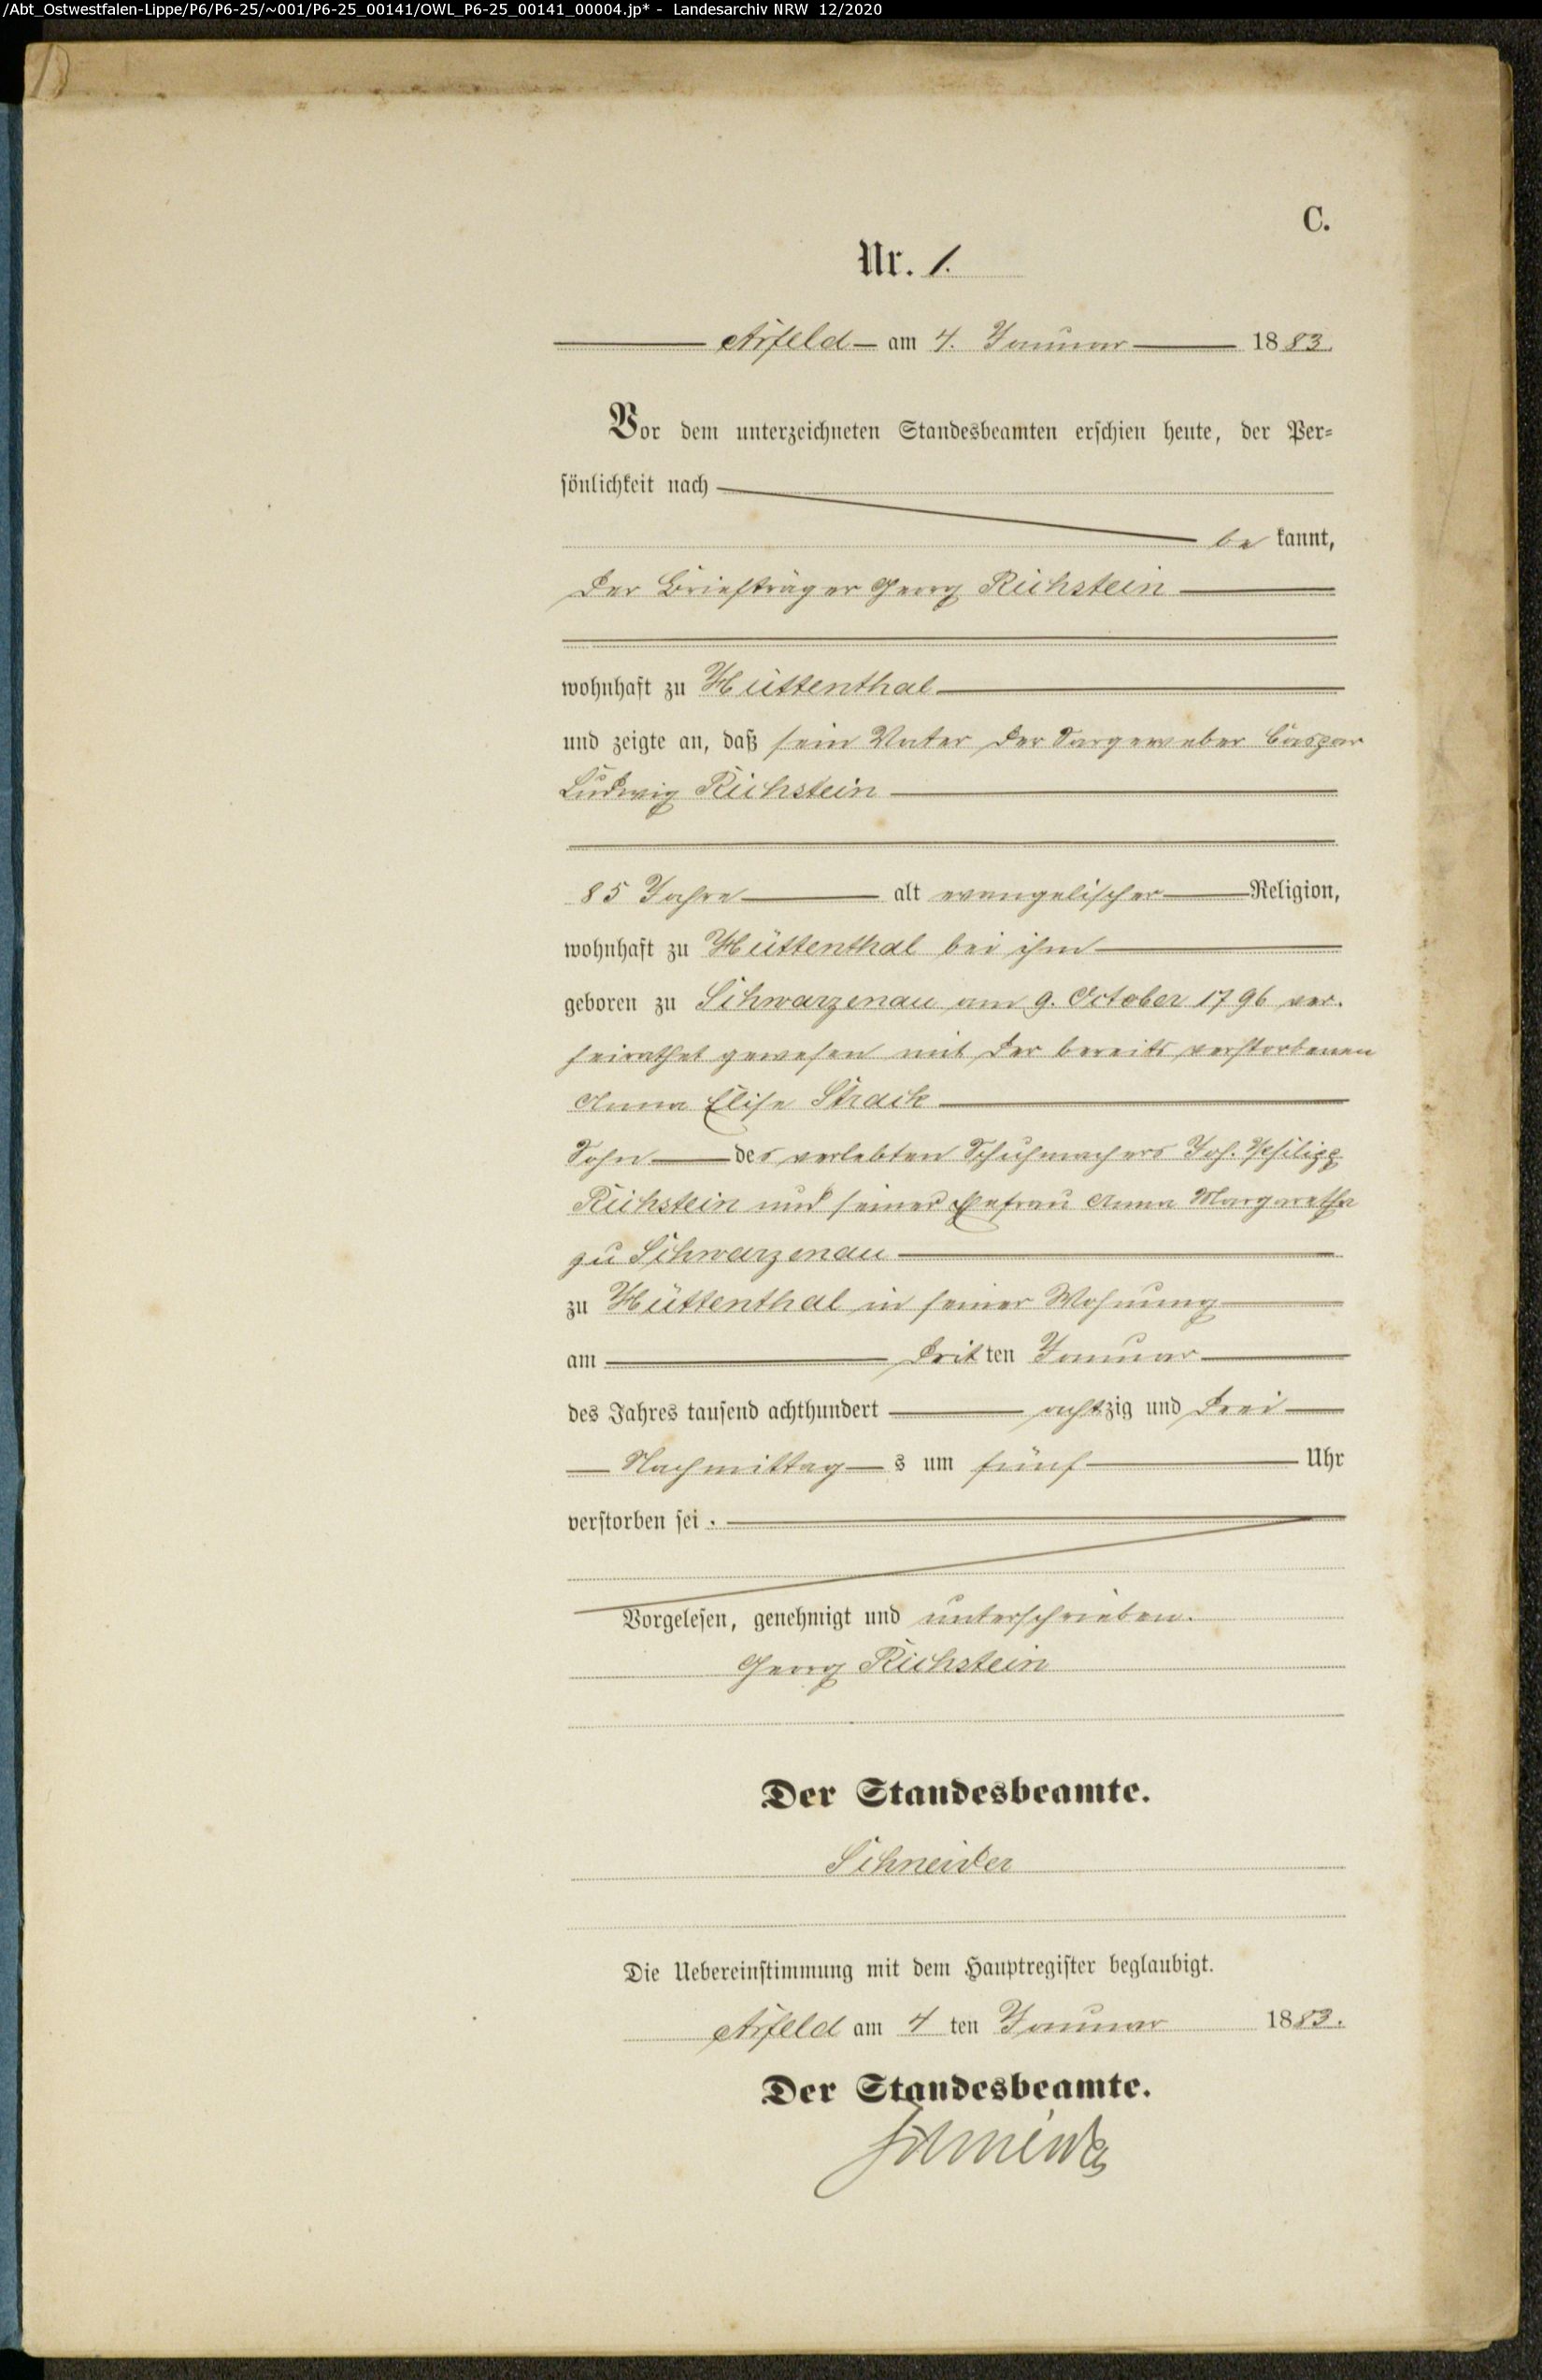 /Abt_Ostwestfalen-Lippe/P6/P6-25/~001/P6-25_00141/OWL_P6-25_00141_00004.jp* - Landesarchiv NRW 12/2020
C.
Nr. 1.
Arfeld am 4. Januar 1883.
Vor dem unterzeichneten Standesbeamten erschien heute, der Per-
sönlichkeit nach
be kannt,
der Briefträger Georg Richstein
wohnhaft zu Hüttenthal
und zeigte an, daß sein Vater der Caspar
Ludwig Richstein
85 Jahre alt evangelischer Religion,
wohnhaft zu Hüttenthal bei ihm
geboren zu Schwarzenau am 9. October 1796 ver.
heirathet gewesen mit der bereits verstorbenen
Anna Elise Strack
Sohn des verlebten Schuhmachers Joh. Philipp
Richstein und seiner Ehefrau Anna Margaretha
zu Schwarzenau
zu Hüttenthal in seiner Wohnung
am dritten Januar
des Jahres tausend achthundert achtzig und drei
Nachmittag s um fünf Uhr
verstorben sei .
Vorgelesen, genehmigt und unterschrieben.
Georg Richstein
Der Standesbeamte.
Schneider
Die Uebereinstimmung mit dem Hauptregister beglaubigt.
Arfeld am 4 ten Januar 1883.
Der Standesbeamte.
Schneider